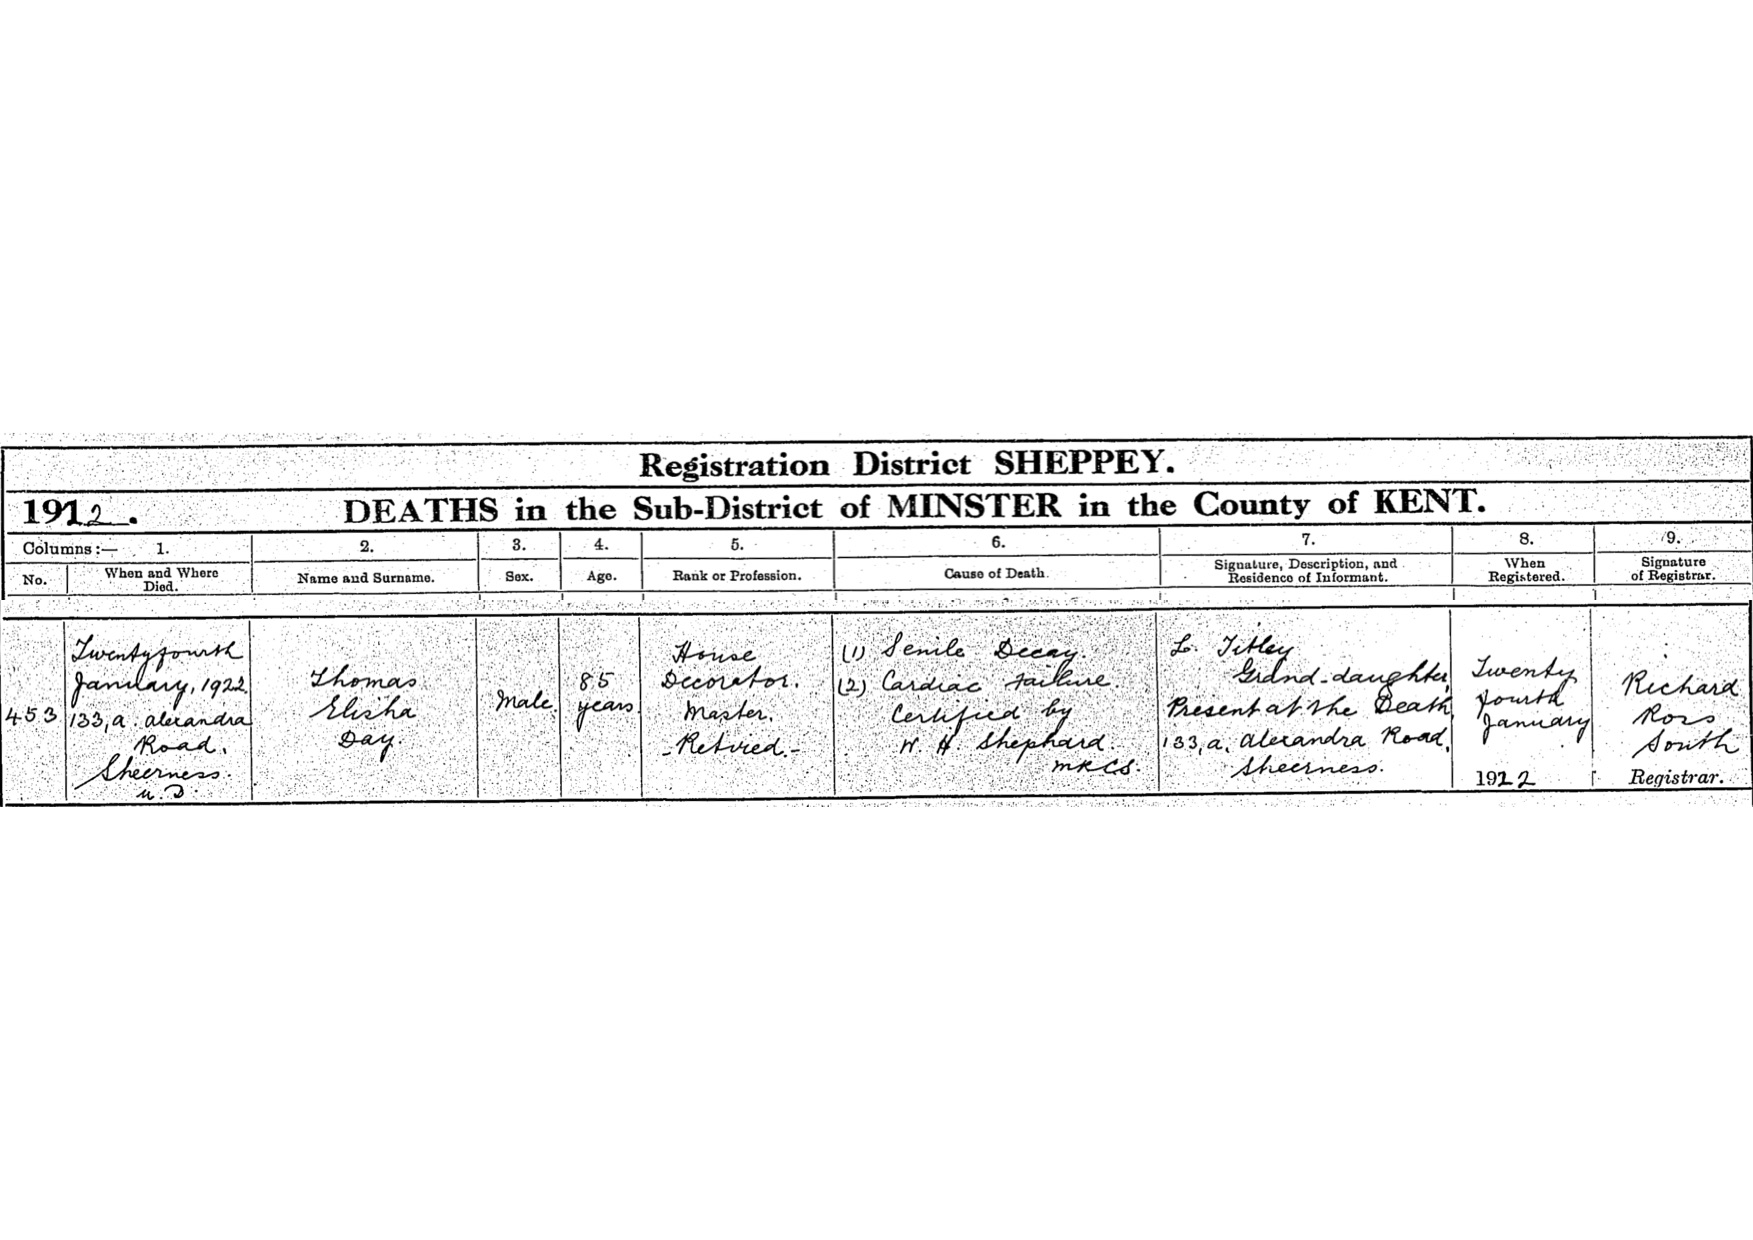 Registration District SHEPPEY.
1922. DEATHS in the Sub-District of MINSTER in the County of KENT.
Columns:— 1. 2. 3. 4. 5. 6. 7. 8. 9.
No. When and Where Died. Name and Surname. Sex. Age. Rank or Profession. Cause of Death. Signature, Description, and Residence of Informant. When Registered. Signature of Registrar.
453
Twenty fourth
January, 1922
133,a. Alexandra
Road,
Sheerness.
U.D.
Thomas
Elisha
Day.
Male
85
years
House
Decorator.
Master.
- Retired. -
(1) Senile Decay.
(2) Cardiac Failure.
Certified by
W. H. Shephard.
MRCS.
L. Titley
Grand-daughter
Present at the Death
133,a, Alexandra Road,
Sheerness.
Twenty
fourth
January
1922
Richard
Ross
South
Registrar.